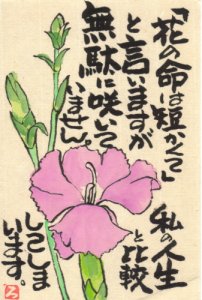 「花の命は短かくて」
と言いますが
無駄に咲いて
いません。
私の人生
と比較
してしま
います。
ろ